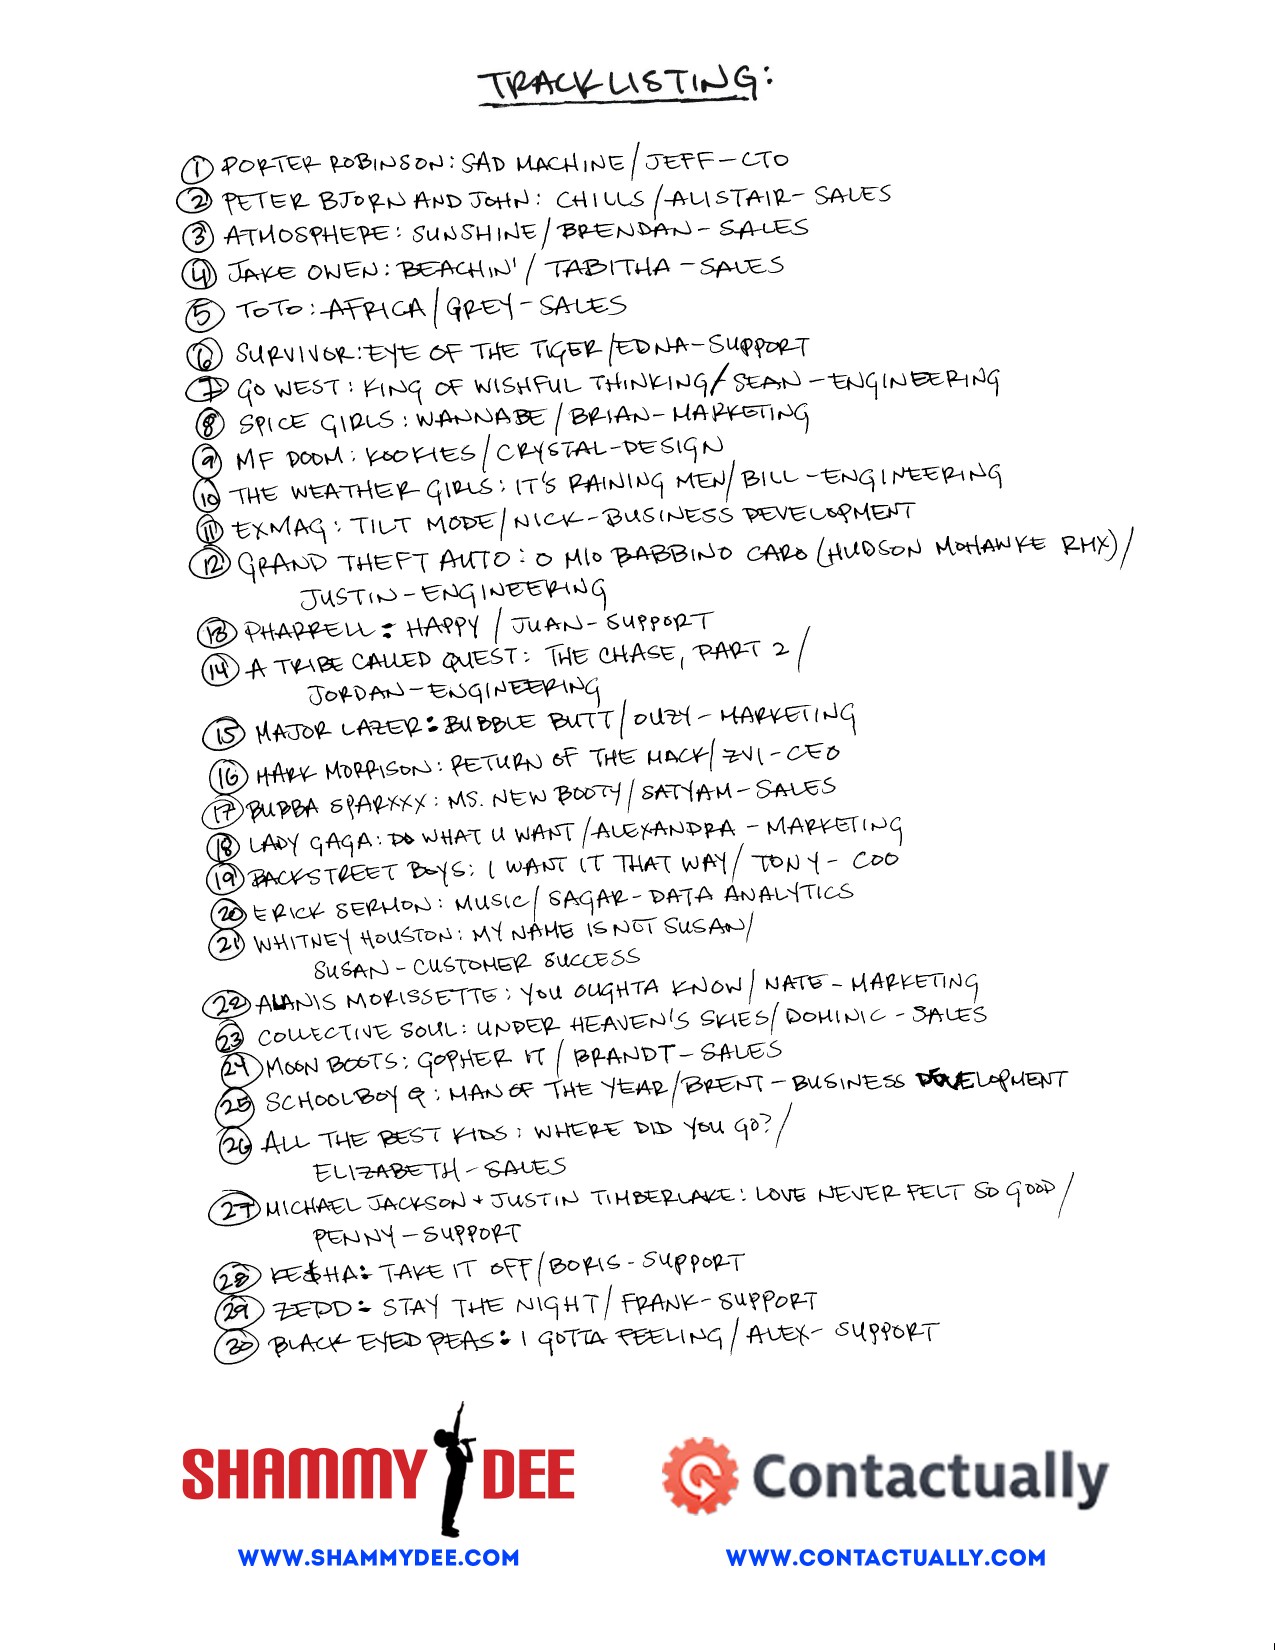 TRACKLISTING:
1 PORTER ROBINSON: SAD MACHINE/JEFF-CTO
2 PETER BJORN AND JOHN: CHILLS/ALISTAIR-SALES
3 ATMOSPHERE: SUNSHINE/BRENDAN-SALES
4 JAKE OWEN: BEACHIN'/TABITHA-SALES
5 TOTO: AFRICA/GREY-SALES
6 SURVIVOR: EYE OF THE TIGER/EDNA-SUPPORT
7 GO WEST: KING OF WISHFUL THINKING/SEAN-ENGINEERING
8 SPICE GIRLS: WANNABE/BRIAN-MARKETING
9 MF DOOM: KOOKIES/CRYSTAL-DESIGN
10 THE WEATHER GIRLS: IT'S RAINING MEN/BILL-ENGINEERING
11 EXMAG: TILT MODE/NICK-BUSINESS DEVELOPMENT
12 GRAND THEFT AUTO: O MIO BABBINO CARO (HUDSON MOHAWKE RMX)/
JUSTIN-ENGINEERING
13 PHARRELL: HAPPY/JUAN-SUPPORT
14 A TRIBE CALLED QUEST: THE CHASE, PART 2/
JORDAN-ENGINEERING
15 MAJOR LAZER: BUBBLE BUTT/OUZY-MARKETING
16 MARK MORRISON: RETURN OF THE MACK/ZVI-CEO
17 BUBBA SPARXXX: MS. NEW BOOTY/SATYAM-SALES
18 LADY GAGA: DO WHAT U WANT/ALEXANDRA-MARKETING
19 BACKSTREET BOYS: I WANT IT THAT WAY/TONY-COO
20 ERICK SERMON: MUSIC/SAGAR-DATA ANALYTICS
21 WHITNEY HOUSTON: MY NAME IS NOT SUSAN/
SUSAN-CUSTOMER SUCCESS
22 ALANIS MORISSETTE: YOU OUGHTA KNOW/NATE-MARKETING
23 COLLECTIVE SOUL: UNDER HEAVEN'S SKIES/DOMINIC-SALES
24 MOON BOOTS: GOPHER IT/BRANDT-SALES
25 SCHOOLBOY Q: MAN OF THE YEAR/BRENT-BUSINESS DEVELOPMENT
26 ALL THE BEST KIDS: WHERE DID YOU GO?/
ELIZABETH-SALES
27 MICHAEL JACKSON + JUSTIN TIMBERLAKE: LOVE NEVER FELT SO GOOD/
PENNY-SUPPORT
28 KE$HA: TAKE IT OFF/BORIS-SUPPORT
29 ZEDD: STAY THE NIGHT/FRANK-SUPPORT
30 BLACK EYED PEAS: I GOTTA FEELING/ALEX-SUPPORT
SHAMMY DEE
Contactually
WWW.SHAMMYDEE.COM
WWW.CONTACTUALLY.COM